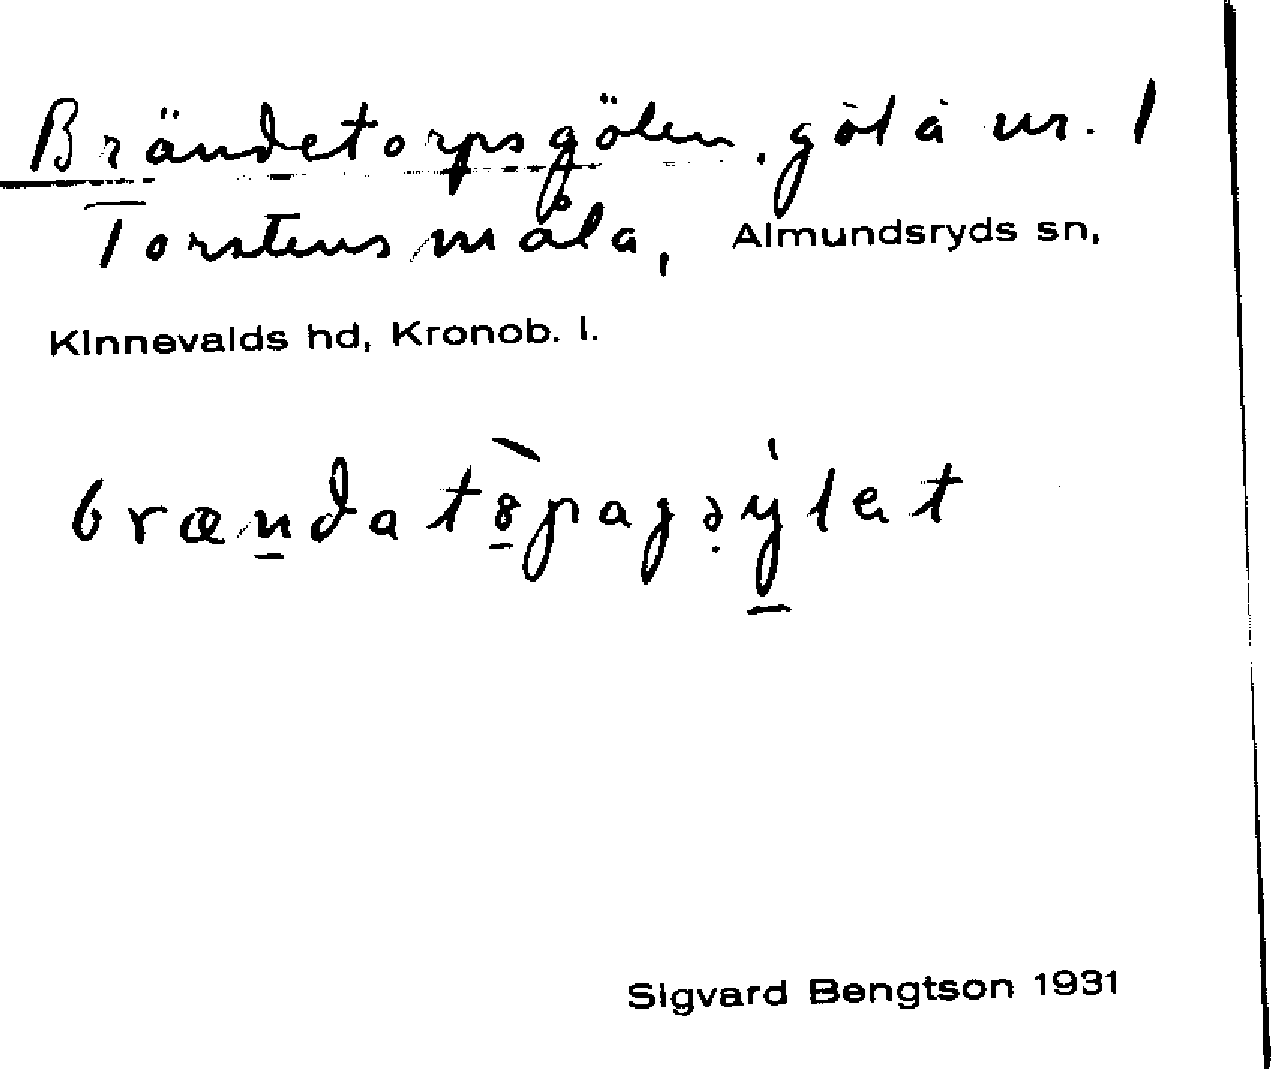 Brändetorpsgölen, göl å nr. 1
Torstensmåla, Almundsryds sn,
Kinnevalds hd, Kronob. l.
Sigvard Bengtson 1931